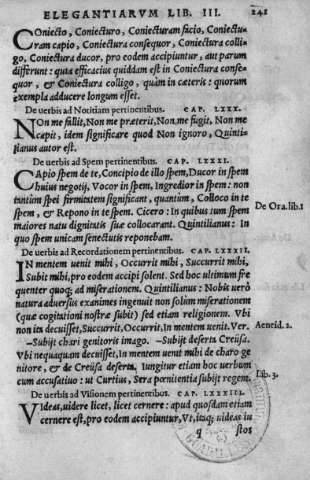 ELEGANTIARVM LIB. III. 241
Coniecto, Coniecturo, Coniecturam facio, Coniectu
ram capio, Coniectura consequor, Coniectura colli-
go, Coniectura ducor, pro eodem accipiuntur, aut parum
differunt: quia efficacius quiddam est in Coniectura conse-
quor, & Coniectura colligo, quàm in cæteris: quorum
exempla adducere longum esset.
De uerbis ad Notitiam pertinentibus. CAP. LXXX.
Non me fallit, Non me præterit, Non me fugit, Non me
capit, idem significare quod Non ignoro, Quinti-
lianus autor est.
De uerbis ad Spem pertinentibus. CAP. LXXXI.
Capio spem de te, Concipio de illo spem, Ducor in spem
huius negotij, Vocor in spem, Ingredior in spem: non
tantùm spei firmitatem significant, quantum, Colloco in te
spem, & Repono in te spem. Cicero: In quibus tum spem
De Ora. lib. 1
maiores natu dignitatis suæ collocarant. Quintilianus: In
quo spem unicam senectutis reponebam.
De uerbis ad Recordationem pertinentibus. CAP. LXXXII.
In mentem uenit mihi, Occurrit mihi, Succurrit mihi,
Subit mihi, pro eodem accipi solent. Sed hoc ultimum fre
quenter quoq; ad miserationem. Quintilianus: Nobis uerò
natura aduersus exanimes ingenuit non solùm miserationem
(quæ cogitationi nostræ subit) sed etiam religionem. Vbi
non ita decuisset, Succurrit, Occurrit, In mentem uenit. Ver.
–Subijt chari genitoris imago. –Subijt deserta Creüsa.
Aeneid. 2.
Vbi nequaquam decuisset, In mentem uenit mihi de charo ge
nitore, & de Creüsa deserta. Iungitur etiam hoc uerbum
cum accusatiuo: ut Curtius, Sera pœnitentia subijt regem.
Lib. 3.
De uerbis ad Visionem pertinentibus. CAP. LXXXIII.
Videas, uidere licet, licet cernere: apud quosdam etiam
cernere est, pro eodem accipiuntur, Vt, itaq; uideas in
q stos